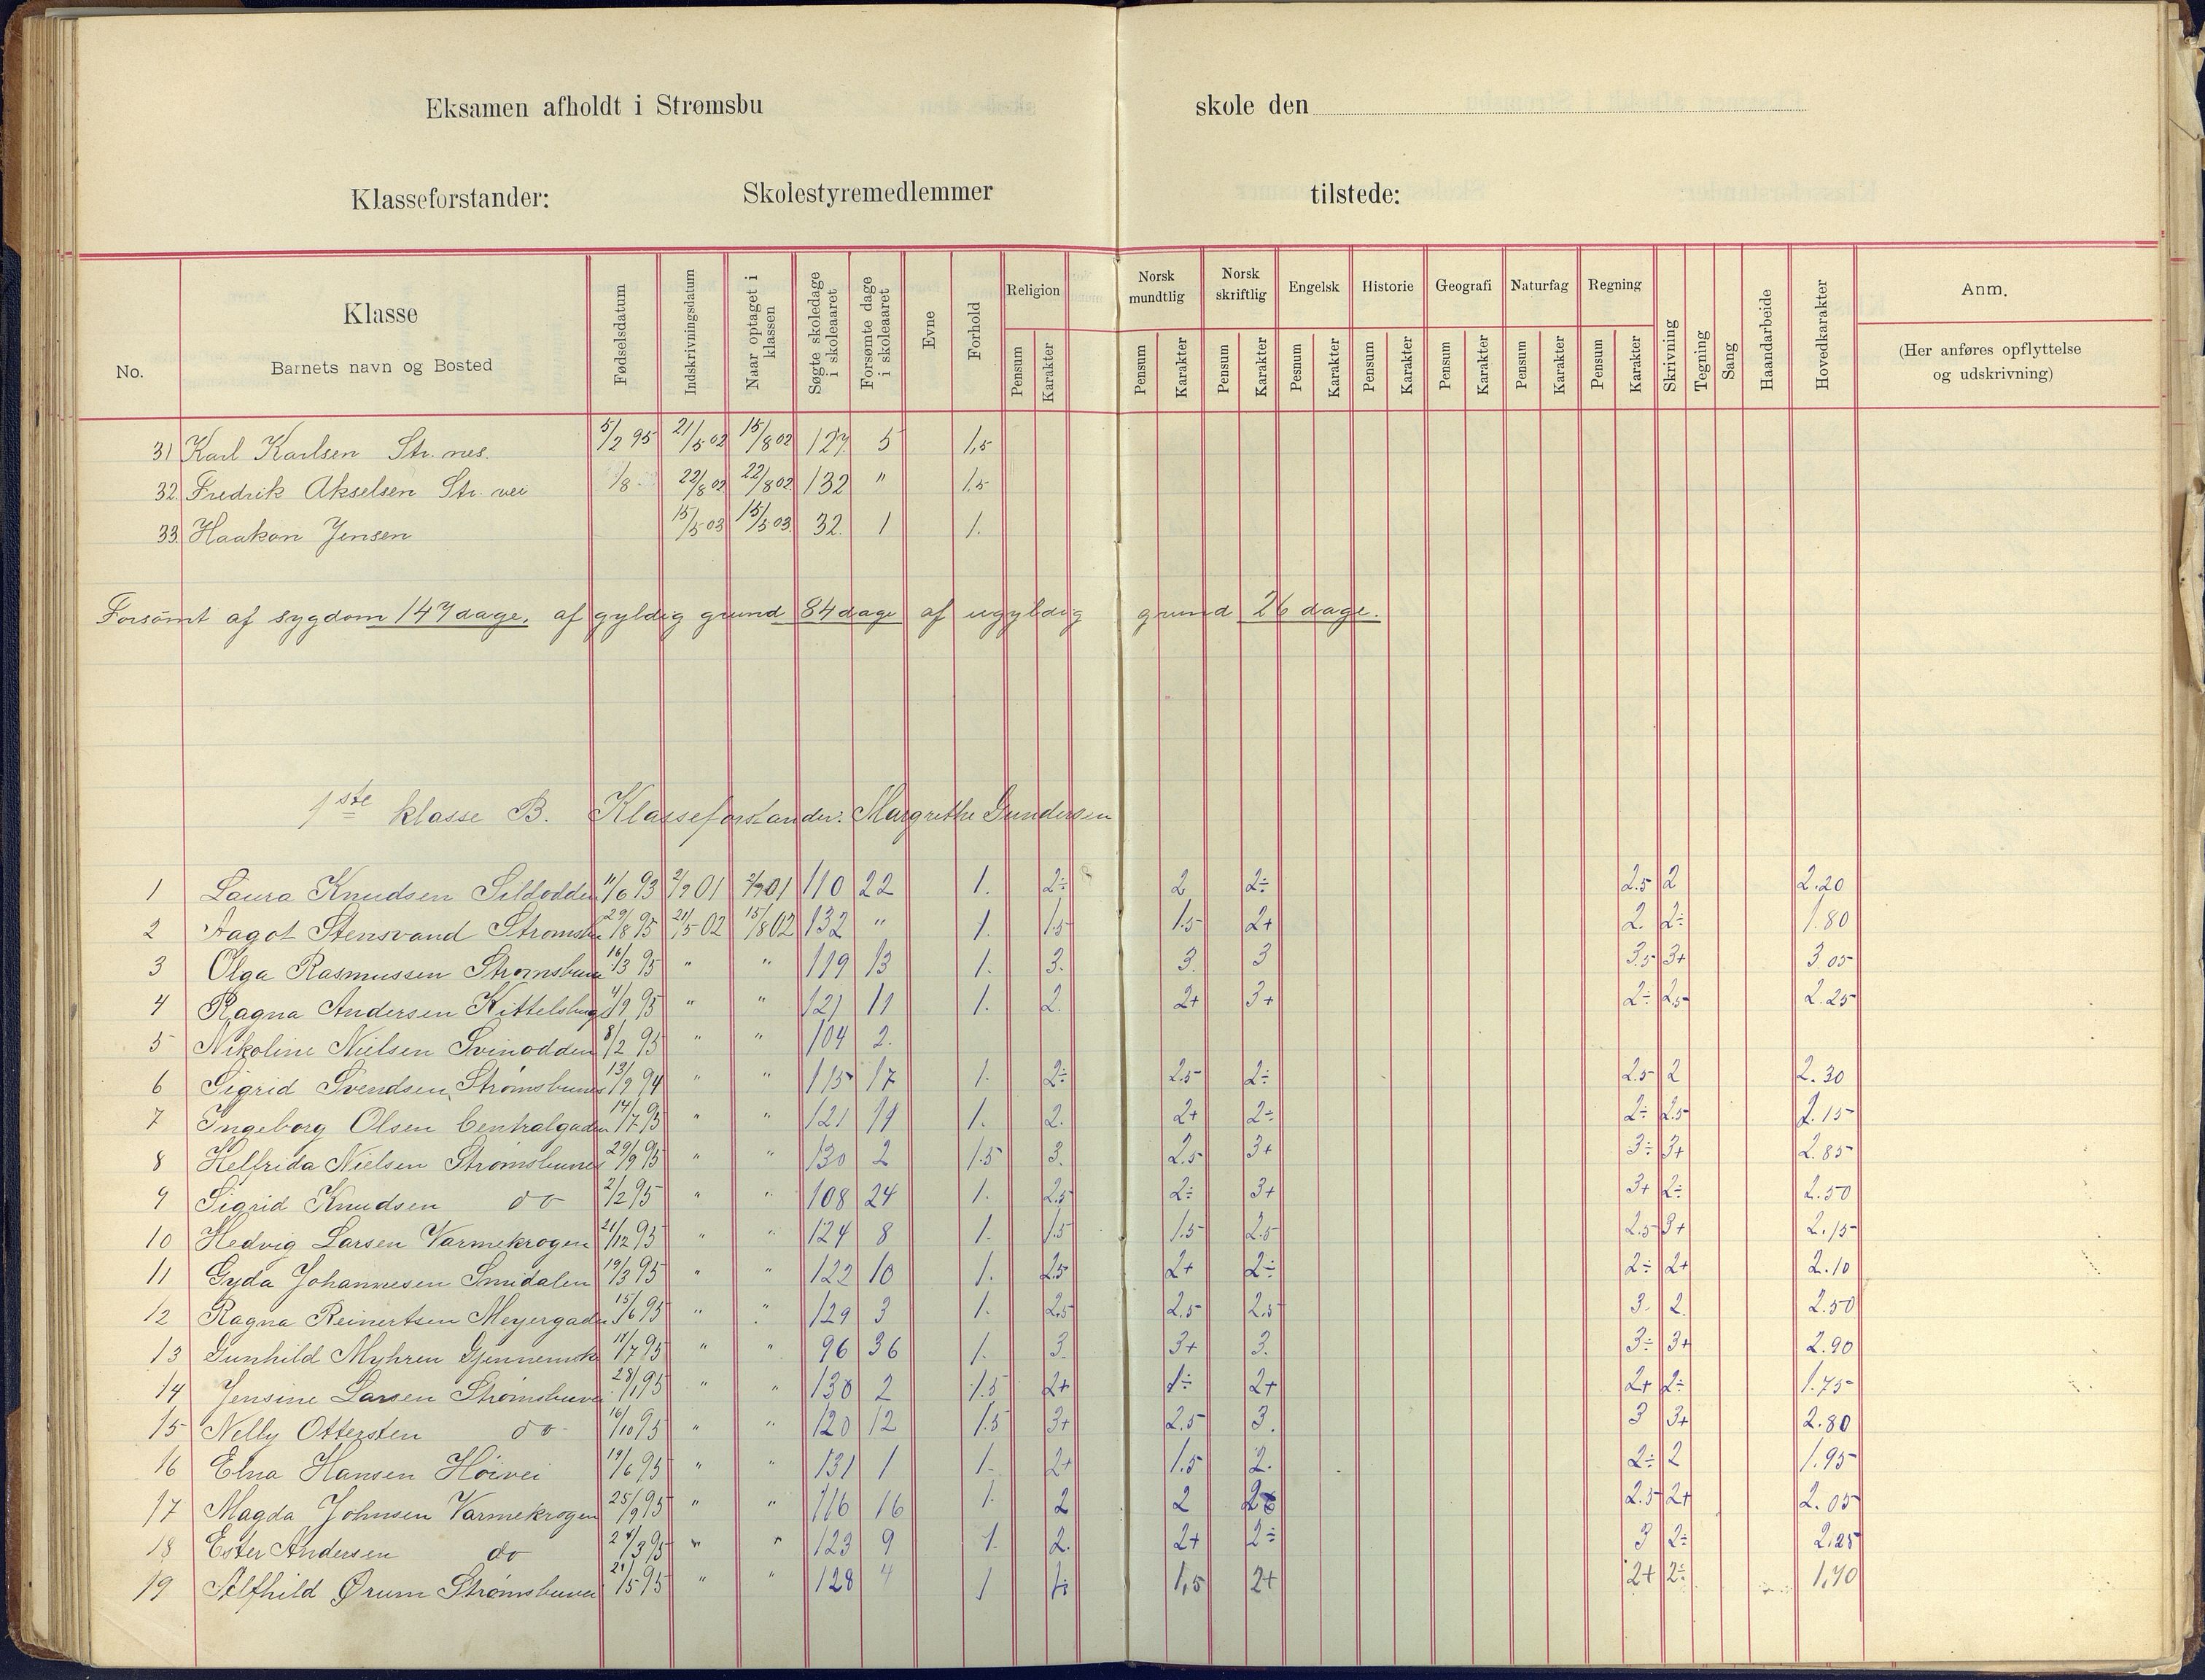 Eksamen afholdt i Strømsbu skole den
Klasseforstander: Skolestyremedlemmer tilstede:
No. Klasse Barnets navn og Bosted Fødselsdatum Indskrivningsdatum Naar optaget i klassen Søgte skoledage i skoleaaret Forsømte dage i skoleaaret Evne Forhold Religion Norsk mundtlig Norsk skriftlig Engelsk Historie Geografi Naturfag Regning Skrivning Tegning Sang Haandarbeide Hovedkarakter Anm.
Pensum Karakter Pensum Karakter Pensum Karakter Pesnum Karakter Pensum Karakter Pensum Karakter Pensum Karakter Pensum Karakter (Her anføres opflyttelse og udskrivning)
31 Karl Karlsen Str. nes. 5/2 95 21/5 02 15/8 02 127. 5 1,5
32. Fredrik Akselsen Str. vei 1/8 22/8 02 22/8 02 132 " 1.5
33. Haakon Jensen 15/5 03 15/5 03. 32. 1 1.
Forsømt af sygdom 147 dage, af gyldig grund 84 dage af ugyldig grund 26 dage.
1ste klasse B. Klasseforstander: Margrethe Gundersen
1 Laura Knudsen Sildodden 11/6 93 2/9 01 2/9 01 110 22 1. 2÷ 2 2÷ 2.5 2 2.20
2 Aagot Stensvand 29/8 95 21/5 02 15/8 02 132 " 1. 1.5 1.5 2+ 2. 2÷ 1.80
3 Olga Rasmussen 16/3 95 " " 119 13 1. 3. 3. 3 3.5 3+ 3.05
4 Ragna Andersen 4/9 95 " " 121 11 1. 2. 2+ 3+ 2÷ 2.5 2.25
5 Nikoline Nielsen Svinodden 8/2 95 " " 104 2.
6 Sigrid Svendsen, Strømsbunes 13/9 94 " " 115 17 1. 2÷ 2.5 2÷ 2.5 2 2.30
7 Ingeborg Olsen Centralgaden 14/7 95 " " 121 11 1. 2. 2+ 2÷ 2÷ 2.5 2.15
8 Helfrida Nielsen Strømsbunes 29/9 95 " " 130 2 1.5 3. 2.5 3+ 3÷ 3+ 2.85
9 Sigrid Knudsen do 2/2 95 " " 108 24 1. 2.5 2÷ 3+ 3+ 2÷ 2.50
10 Hedvig Larsen Varmekrogen 21/12 95 " " 124 8 1. 1.5 1.5 2.5 2.5 3+ 2.15
11 Gyda Johannesen Smidalen 19/3 95 " " 122 10 1. 2.5 2+ 2÷ 2÷ 2+ 2.10
12 Ragna Reinertsen Meyergaden 15/6 95 " " 129 3 1. 2.5 2.5 2.5 3. 2. 2.50
13 Gunhild Myhren 18/7 95 " " 96 36 1. 3. 3+ 3. 3÷ 3+ 2.90
14 Jensine Larsen Strømsbuvei 28/1 95 " " 130 2 1.5 2+ 1÷ 2+ 2+ 2÷ 1.75
15 Nelly Ottersten do 16/10 95 " " 120 12 1.5 3+ 2.5 3. 3 3+ 2.80
16 Elna Hansen Höivei 19/6 95 " " 131 1 1. 2+ 1.5 2. 2÷ 2 1.95
17 Magda Johnsen Varmekrogen 25/9 95 " " 116 16 1. 2 2 2.5 2+ 2.05
18 Ester Andersen do 24/3 95 " " 123 9 1. 2. 2+ 2÷ 3 2÷ 2.25
19 Alfhild Ørum Strømsbuvei 21/5 95 " " 128 4 1 1÷ 1,5 2+ 2+ 2÷ 1,70